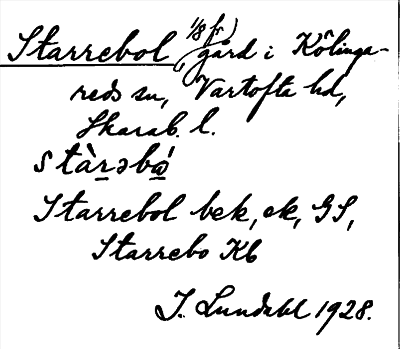 Starrebol (1/8 fr.) gård i Kölinga-
reds sn, Vartofta hd,
Skarab. l.
stàrəbó
Starrebol bek, ek, GS,
Starrebo Kb
J. Lundahl 1928.